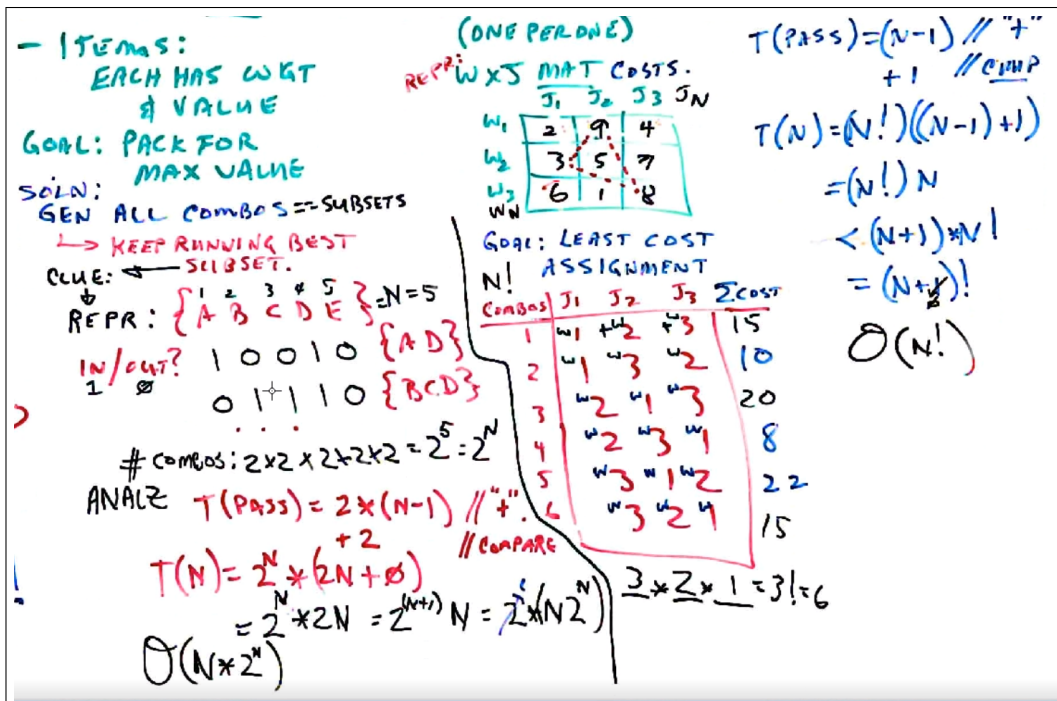 - ITEMS:
EACH HAS WGT
& VALUE
GOAL: PACK FOR
MAX VALUE
SOLN:
GEN ALL COMBOS == SUBSETS
↳ KEEP RUNNING BEST
SUBSET.
CLUE: ←
1 2 3 4 5
REPR: {A B C D E} = N=5
IN/OUT? 1 0 0 1 0 {AD}
1 ∅
0 1 1 1 0 {BCD}
. . .
# COMBOS: 2×2×2×2×2=2^5=2^N
ANALZ
T(PASS) = 2*(N-1) // "+".
+2 // COMPARE
T(N) = 2^N * (2N+∅)
= 2^N * 2N = 2^(N+1) N = 2*(N2^N)
O(N*2^N)
(ONE PER ONE)
REPR: W X J MAT COSTS.
J1 J2 J3 JN
W1 2 9 4
W2 3 5 7
W3 6 1 8
WN
GOAL: LEAST COST
ASSIGNMENT
N!
COMBOS J1 J2 J3 ΣCOST
1 W1 +W2 +W3 15
2 W1 W3 W2 10
3 W2 W1 W3 20
4 W2 W3 W1 8
5 W3 W1 W2 22
6 W3 W2 W1 15
3*2*1=3!=6
T(PASS)=(N-1) // "+"
+1 // CMMP
T(N)=(N!)((N-1)+1)
=(N!)N
<(N+1)*N!
=(N+1)!
O(N!)